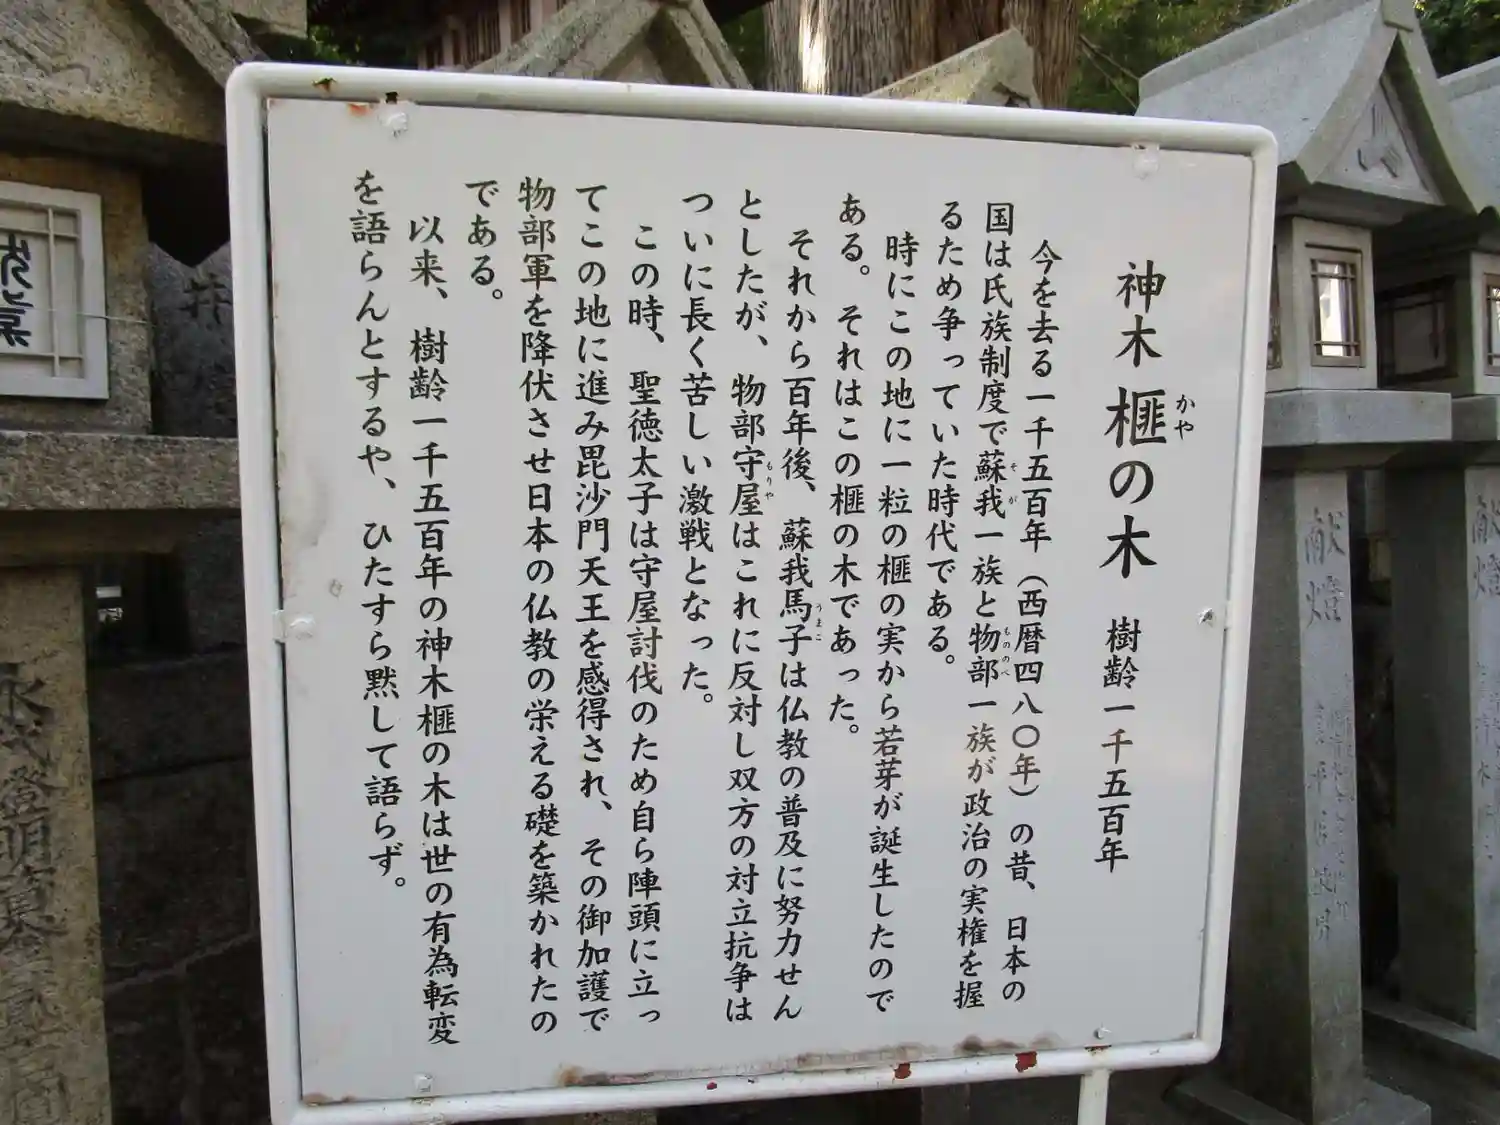 神木 榧の木 樹齢一千五百年
かや
今を去る一千五百年（西暦四八〇年）の昔、日本の
国は氏族制度で蘇我一族と物部一族が政治の実権を握
そが
もののべ
るため争っていた時代である。
時にこの地に一粒の榧の実から若芽が誕生したので
ある。それはこの榧の木であった。
それから百年後、蘇我馬子は仏教の普及に努力せん
うまこ
としたが、物部守屋はこれに反対し双方の対立抗争は
もりや
ついに長く苦しい激戦となった。
この時、聖徳太子は守屋討伐のため自ら陣頭に立っ
てこの地に進み毘沙門天王を感得され、その御加護で
物部軍を降伏させ日本の仏教の栄える礎を築かれたの
である。
以来、樹齢一千五百年の神木榧の木は世の有為転変
を語らんとするや、ひたすら黙して語らず。
献燈
献燈